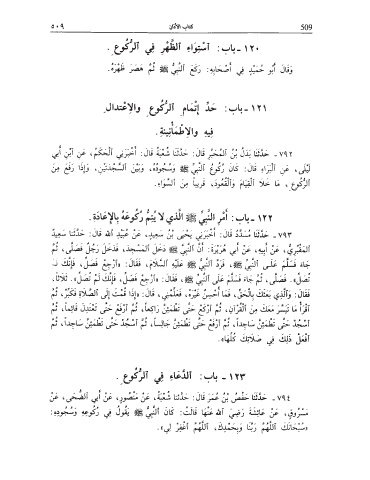 ٥٠٩ كتاب الأذان 509
١٢٠ - باب: اسْتِوَاءِ الظَّهْرِ فِي الرُّكُوعِ.
وَقَالَ أَبُو حُمَيْدٍ فِي أَصْحَابِهِ: رَكَعَ النَّبِيُّ ﷺ ثُمَّ هَصَرَ ظَهْرَهُ.
١٢١ - باب: حَدِّ إِتْمَامِ الرُّكُوعِ وَالاِعْتِدَالِ
فِيهِ وَالاِطْمَأْنِينَةِ.
٧٩٢ - حَدَّثَنَا بَدَلُ بْنُ الْمُحَبَّرِ قَالَ: حَدَّثَنَا شُعْبَةُ قَالَ: أَخْبَرَنِي الْحَكَمُ، عَنِ ابْنِ أَبِي
لَيْلَى، عَنِ الْبَرَاءِ قَالَ: كَانَ رُكُوعُ النَّبِيِّ ﷺ وَسُجُودُهُ، وَبَيْنَ السَّجْدَتَيْنِ، وَإِذَا رَفَعَ مِنَ
الرُّكُوعِ، مَا خَلَا الْقِيَامَ وَالْقُعُودَ، قَرِيباً مِنَ السَّوَاءِ.
١٢٢ - باب: أَمْرِ النَّبِيِّ ﷺ الَّذِي لَا يُتِمُّ رُكُوعَهُ بِالإِعَادَةِ.
٧٩٣ - حَدَّثَنَا مُسَدَّدٌ قَالَ: أَخْبَرَنِي يَحْيَى بْنُ سَعِيدٍ، عَنْ عُبَيْدِ اللهِ قَالَ: حَدَّثَنَا سَعِيدٌ
الْمَقْبُرِيُّ، عَنْ أَبِيهِ، عَنْ أَبِي هُرَيْرَةَ: أَنَّ النَّبِيَّ ﷺ دَخَلَ الْمَسْجِدَ، فَدَخَلَ رَجُلٌ فَصَلَّى، ثُمَّ
جَاءَ فَسَلَّمَ عَلَى النَّبِيِّ ﷺ، فَرَدَّ النَّبِيُّ ﷺ عَلَيْهِ السَّلَامَ، فَقَالَ: «ارْجِعْ فَصَلِّ، فَإِنَّكَ لَمْ
تُصَلِّ». فَصَلَّى، ثُمَّ جَاءَ فَسَلَّمَ عَلَى النَّبِيِّ ﷺ، فَقَالَ: «ارْجِعْ فَصَلِّ، فَإِنَّكَ لَمْ تُصَلِّ». ثَلَاثاً،
فَقَالَ: وَالَّذِي بَعَثَكَ بِالْحَقِّ، فَمَا أُحْسِنُ غَيْرَهُ، فَعَلِّمْنِي، قَالَ: «إِذَا قُمْتَ إِلَى الصَّلَاةِ فَكَبِّرْ، ثُمَّ
اقْرَأْ مَا تَيَسَّرَ مَعَكَ مِنَ الْقُرْآنِ، ثُمَّ ارْكَعْ حَتَّى تَطْمَئِنَّ رَاكِعاً، ثُمَّ ارْفَعْ حَتَّى تَعْتَدِلَ قَائِماً، ثُمَّ
اسْجُدْ حَتَّى تَطْمَئِنَّ سَاجِداً، ثُمَّ ارْفَعْ حَتَّى تَطْمَئِنَّ جَالِساً، ثُمَّ اسْجُدْ حَتَّى تَطْمَئِنَّ سَاجِداً، ثُمَّ
افْعَلْ ذَلِكَ فِي صَلَاتِكَ كُلِّهَا».
١٢٣ - باب: الدُّعَاءِ فِي الرُّكُوعِ.
٧٩٤ - حَدَّثَنَا حَفْصُ بْنُ عُمَرَ قَالَ: حَدَّثَنَا شُعْبَةُ، عَنْ مَنْصُورٍ، عَنْ أَبِي الضُّحَى، عَنْ
مَسْرُوقٍ، عَنْ عَائِشَةَ رَضِيَ اللهُ عَنْهَا قَالَتْ: كَانَ النَّبِيُّ ﷺ يَقُولُ فِي رُكُوعِهِ وَسُجُودِهِ:
«سُبْحَانَكَ اللَّهُمَّ رَبَّنَا وَبِحَمْدِكَ، اللَّهُمَّ اغْفِرْ لِي».